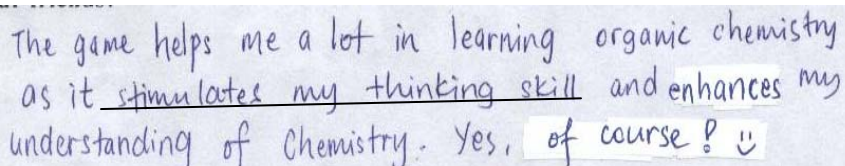 The game helps me a lot in learning organic chemistry
as it stimulates my thinking skill and enhances my
understanding of Chemistry. Yes, of course! :)